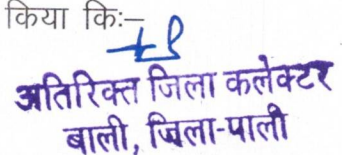 किया कि:–
अतिरिक्त जिला कलेक्टर
बाली, जिला-पाली